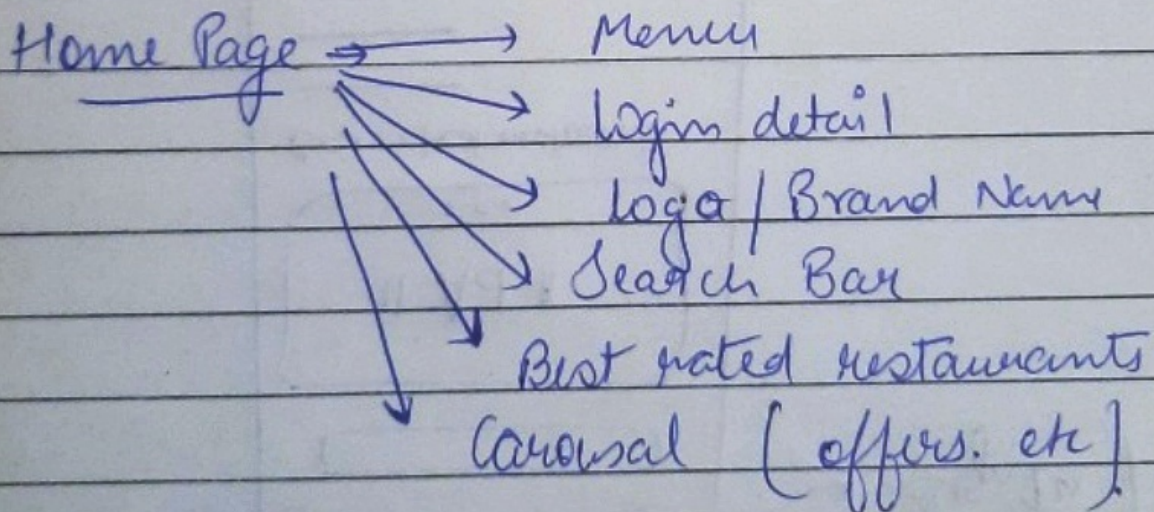 Home Page → Menu
Login detail
Logo / Brand Name
Search Bar
Best rated restaurants
Carousal (offers. etc)